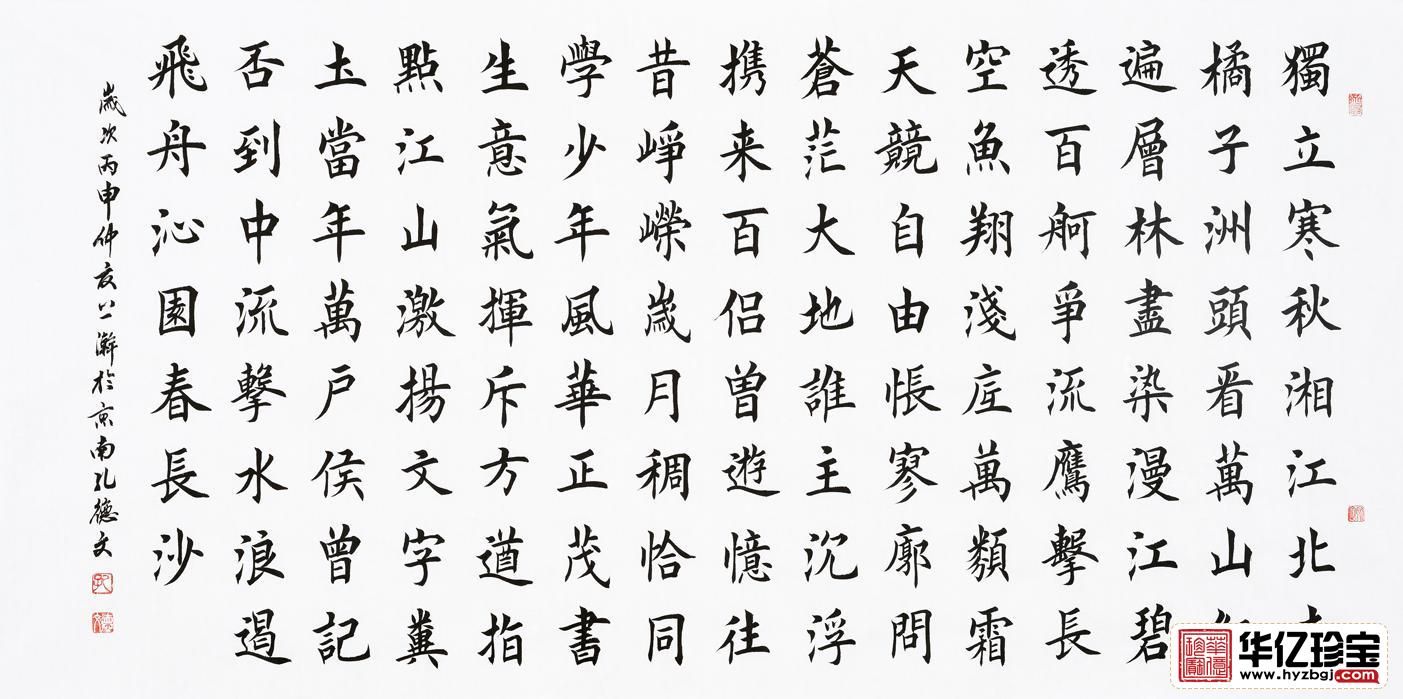 獨立寒秋湘江北
橘子洲頭看萬山
遍層林盡染漫江碧
透百舸爭流鷹擊長
空魚翔淺底萬類霜
天競自由悵寥廓問
蒼茫大地誰主沉浮
携来百侣曾遊憶往
昔崢嶸歲月稠恰同
學少年風華正茂書
生意氣揮斥方遒指
點江山激揚文字糞
土當年萬户侯曾記
否到中流擊水浪遏
飛舟沁園春長沙
歲次丙申仲夏上澣於京南孔德文
华亿珍宝
www.hyzbgj.com